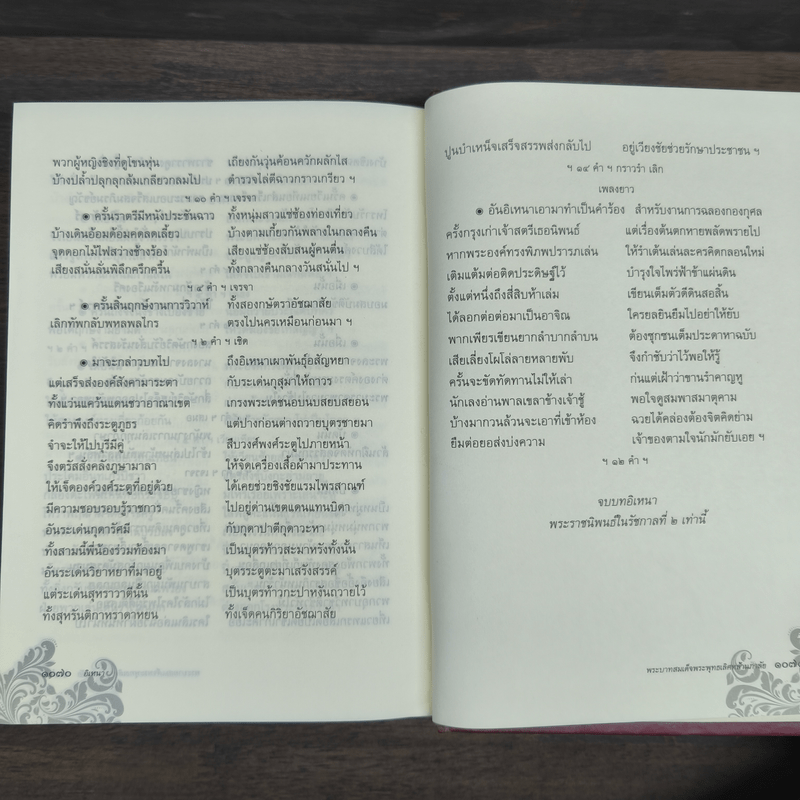 พวกผู้หญิงชิงที่ดูโขนหุ่น เถียงกันวุ่นค้อนควักผลักไส
บ้างปล้ำปลุกลุกล้มเกลียวกลมไป ตำรวจไล่ตีฉาวกราวเกรียว ฯ
ฯ ๑๐ คำ ฯ เจรจา
๏ ครั้นราตรีมีหนังประชันฉาว ทั้งหนุ่มสาวแซ่ซ้องท่องเที่ยว
บ้างเดินอ้อมด้อมคดลดเลี้ยว บ้างตามเกี้ยวกันพลางในกลางคืน
จุดดอกไม้ไฟสว่างช้างร้อง เสียงแซ่ซ้องสับสนผู้คนตื่น
เสียงสนั่นลั่นพิลึกครึกครื้น ทั้งกลางคืนกลางวันสนั่นไป ฯ
ฯ ๔ คำ ฯ เจรจา
๏ ครั้นสิ้นฤกษ์งานการวิวาห์ ทั้งสองกษัตราอัชฌาสัย
เลิกทัพกลับพหลพลไกร ตรงไปนครเหมือนก่อนมา ฯ
ฯ ๒ คำ ฯ เชิด
๏ มาจะกล่าวบทไป ถึงอิเหนาเผ่าพันธุ์อสัญหยา
แต่เสร็จส่งองค์สังคามาระตา กับระเด่นกุสุมาให้ถาวร
ทั้งแว่นแคว้นแดนชวาอาณาเขต เกรงพระเดชนอบนบสยบสยอน
คิดรำพึงถึงระตูภูธร แต่ปางก่อนต่างถวายบุตรชายมา
จำจะให้ไปบุรีมีคู่ สืบวงศ์พงศ์ระตูไปภายหน้า
จึงตรัสสั่งคลังภูษามาลา ให้จัดเครื่องเสื้อผ้ามาประทาน
ให้เจ็ดองค์วงศ์ระตูที่อยู่ด้วย ได้เคยช่วยชิงชัยแรมไพรสาณฑ์
มีความชอบรอบรู้ราชการ ไปอยู่ด่านเขตแดนแทนบิดา
อันระเด่นกุดารัศมี กับกุดาปาตีกุดาวะหา
ทั้งสามนี้พี่น้องร่วมท้องมา เป็นบุตรท้าวสะมาหรังทั้งนั้น
อันระเด่นวิยาหยาที่มาอยู่ บุตรระตูตะมาเสรังสรรค์
แต่ระเด่นสุหราวาตีนั้น เป็นบุตรท้าวกะปาหงันถวายไว้
ทั้งสุหรันติกาหราดาหยน ทั้งเจ็ดคนกิริยาอัชฌาสัย
๑๐๗๐ อิเหนา
ปูนบำเหน็จเสร็จสรรพส่งกลับไป อยู่เวียงชัยช่วยรักษาประชาชน ฯ
ฯ ๑๔ คำ ฯ กราวรำ เลิก
เพลงยาว
๏ อันอิเหนาเอามาทำเป็นคำร้อง สำหรับงานการฉลองกองกุศล
ครั้งกรุงเก่าเจ้าสตรีเธอนิพนธ์ แต่เรื่องต้นตกหายพลัดพรายไป
หากพระองค์ทรงพิภพปรารภเล่น ให้รำเต้นเล่นละครคิดกลอนใหม่
เติมแต้มต่อติดประดิษฐ์ไว้ บำรุงใจไพร่ฟ้าข้าแผ่นดิน
ตั้งแต่หนึ่งถึงสี่สิบห้าเล่ม เขียนเต็มตัวดีดินสอสิ้น
ได้ลอกต่อต่อมาเป็นอาจิณ ใครยลยินยืมไปอย่าให้ยับ
พากเพียรเขียนยากลำบากลำบน ต้องซุกซนเต็มประดาหาฉบับ
เสียเลี่ยงโผโล่ลายหลายพับ จึงกำชับว่าไว้พอให้รู้
ครั้นจะขัดทัดทานไม่ให้เล่า ก่นแต่เฝ้าว่าขานรำคาญหู
นักเลงอ่านพาลเขลาข้างเจ้าชู้ พอใจดูสมพาสมาตุคาม
บ้างมากวนล้วนจะเอาที่เข้าห้อง ฉวยได้คล่องต้องจิตคิดย่าม
ยืมต่อยอส่งบ่งความ เจ้าของตามใจนักมักยับเอย ฯ
ฯ ๑๒ คำ ฯ
จบบทอิเหนา
พระราชนิพนธ์ในรัชกาลที่ ๒ เท่านี้
พระบาทสมเด็จพระพุทธเลิศหล้านภาลัย